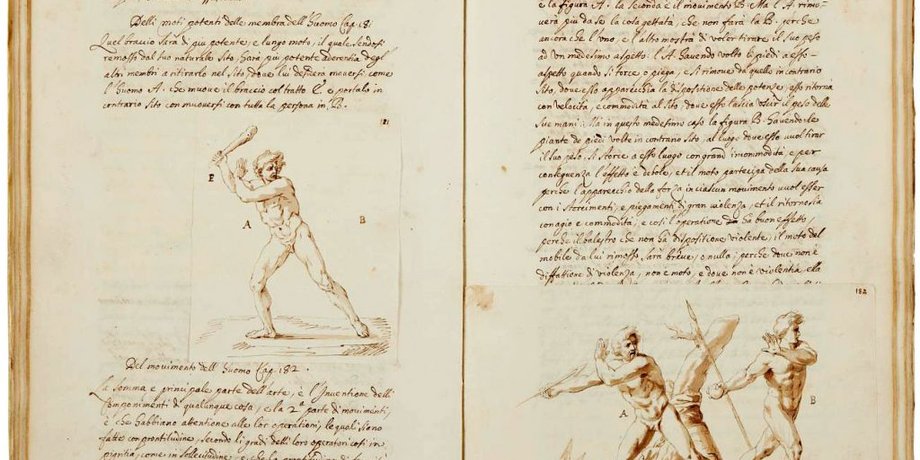 Delli moti potenti delle membra dell'Huomo Cap. 181
Quel braccio sarà di piu potente, e lungo moto, il quale sendosi
remosso dal suo naturale sito, harà piu potente aderentia degl'
altri membri a ritirarlo nel sito, dove lui desidera muoversi come
l'huomo A. che muove il braccio col tratto E. e portalo in
contrario sito con muoversi con tutta la persona in B.
181
E
A
B
Del movimento dell'huomo Cap. 182.
La somma e principale parte dell'arte, è l'Inventione delli
Componimenti di qualunque cosa, e la 2ª parte di movimenti,
è che habbiano attentione alle lor operationi, le quali sieno
fatte con prontitudine, secondo li gradi delli loro operatori così in
pigritia, come in sollecitudine,
è la figura A. la seconda è il movimento B. Ma l'A. rimo-
verà piu da se la cosa gettata, che non farà la B. perche
ancora che l'uno, e l'altro mostrà di voler tirare il suo peso
ad un medesimo aspetto, l'A. havendo volto li piedi a esso
aspetto quando si torce o piega, e si rimove da quello in contrario
sito, dove esso apparecchia la dispositione della potenze, esso ritorna
con velocità, e commodità al sito, dove esso lascia uscir il peso delle
sue mani. Ma in questo medesimo caso la figura B. havendo le
piante de piedi volte in contrario sito, al luogo dove esso vuol tirar
il suo peso, si storce a esso luogo con grand'incommodità, e per
conseguenza l'effetto è debole, et il moto partecipa della sua causa
perche l'apparechio della forza in ciascun movimento vuol esser
con istorcimenti, e piegamenti di gran violenza, et il ritorno sia
con agio e commodità, e così l'operatione ha buon effetto,
perche il balestro che non ha dispositione violente, il moto del
mobile da lui rimosso, sarà breve, o nulla: perche dove non è
disfattione di violenza, non è moto, e dove non è violentia, ella
182
A
B